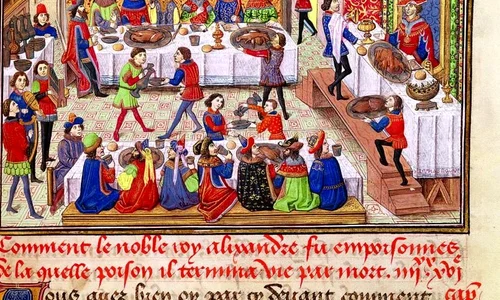 Comment le noble roy alixandre fu empoisonnes
de la quelle poison il termina vie par mort. iiij xx xvj
Vous auez bien oy par cy deuant comment